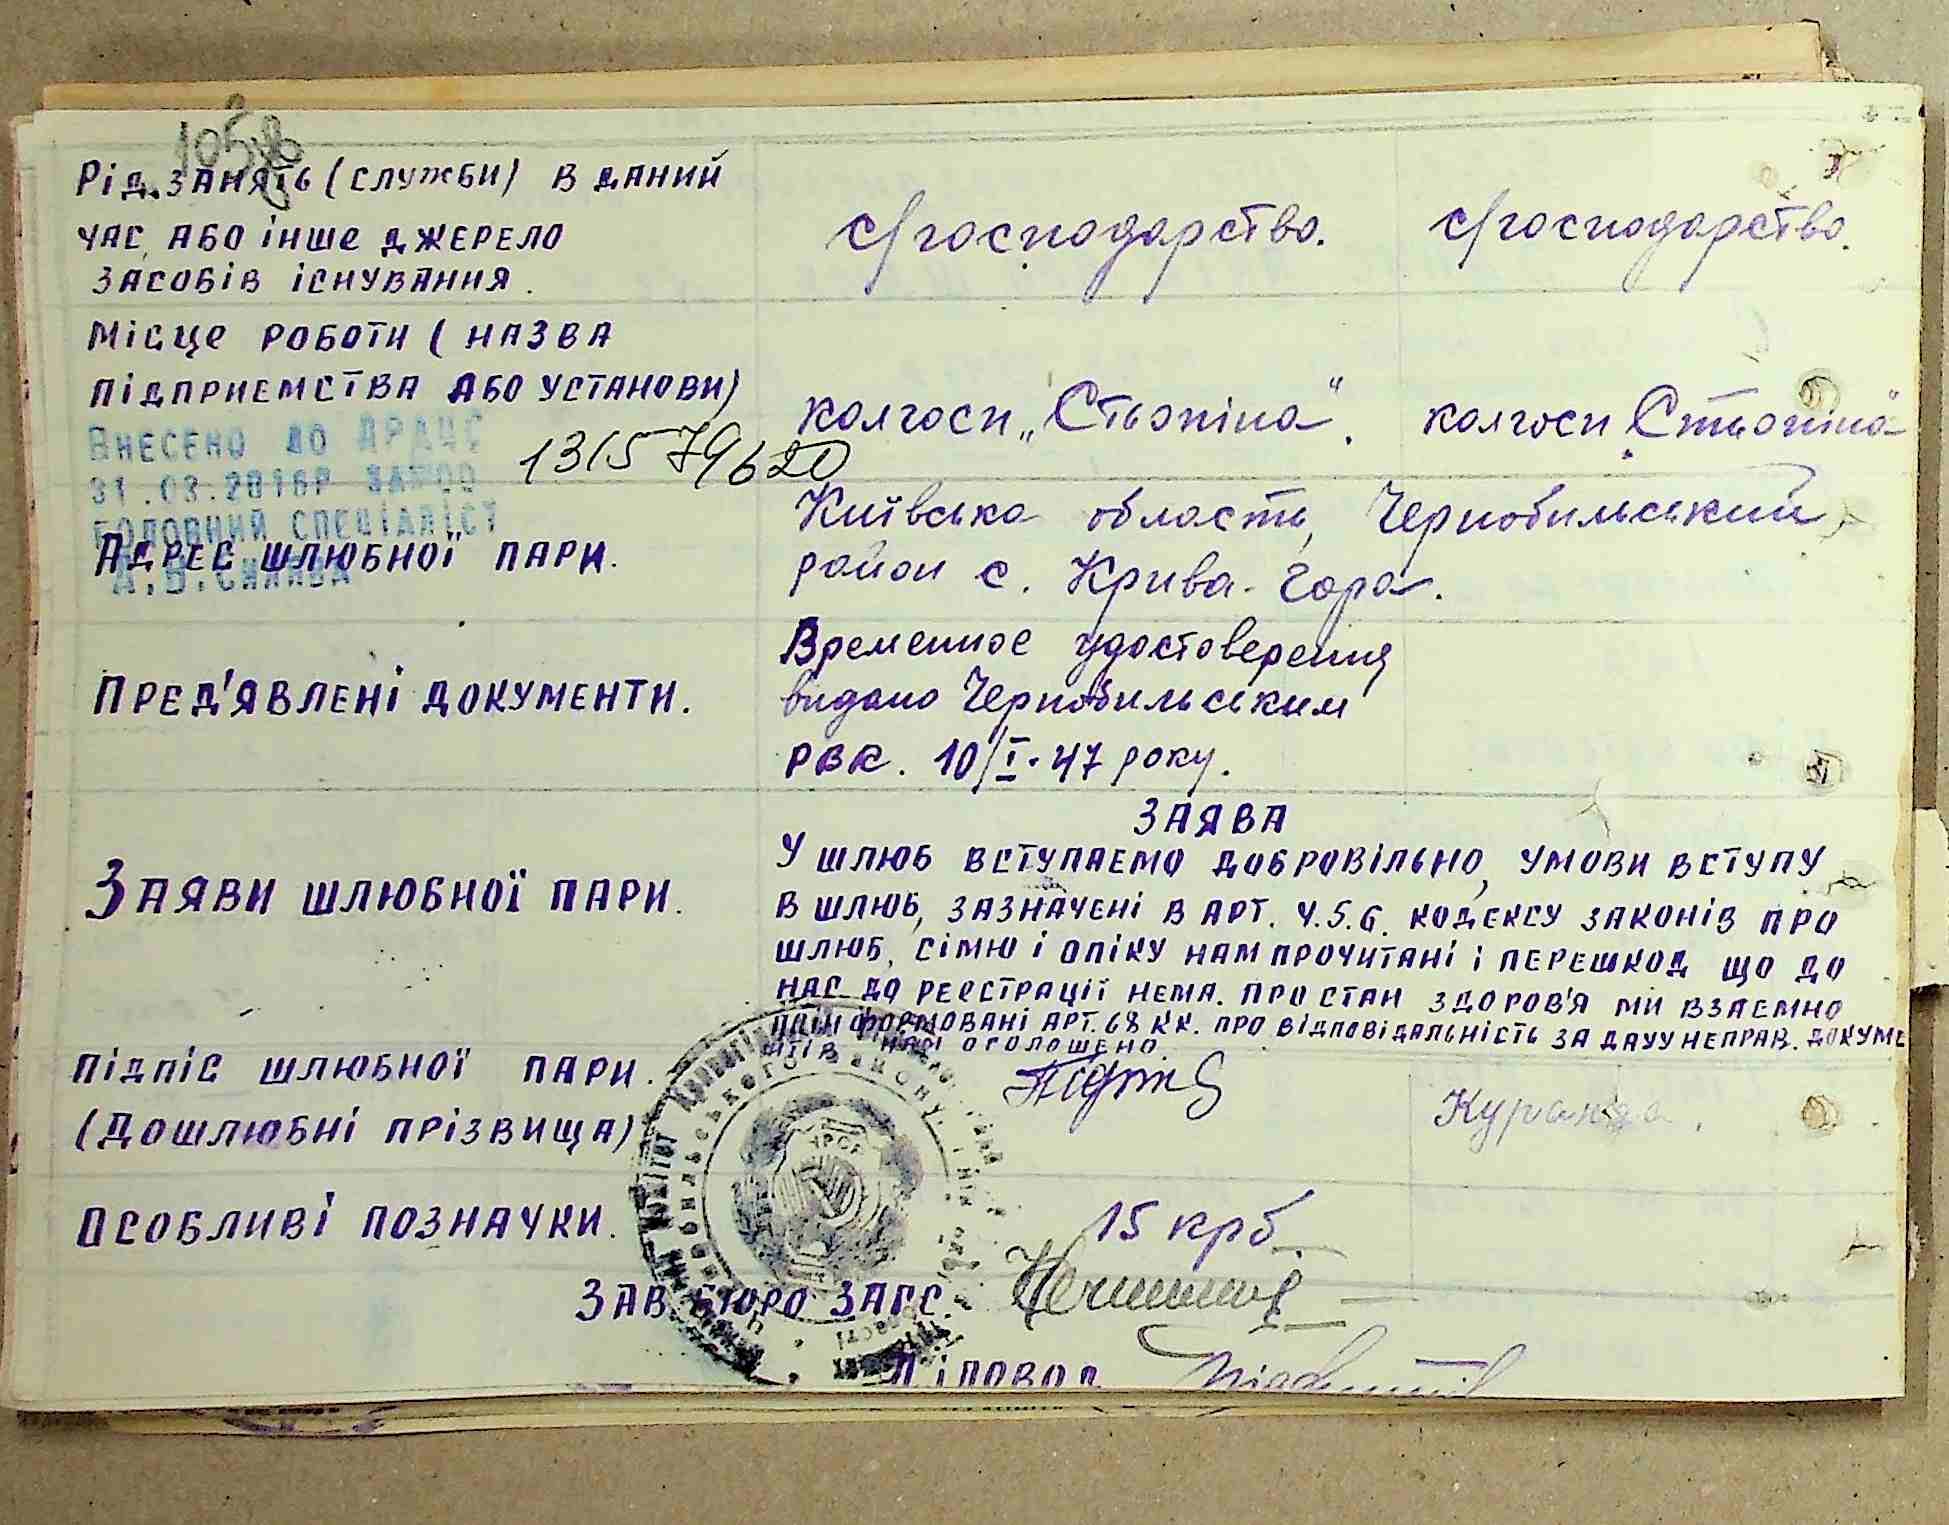 Рід занять (служби) в даний
час або інше джерело
засобів існування.
с/господарство. с/господарство.
Місце роботи (назва
підприемства або установи)
колгосп „Стьопіна". колгосп „Стьопіна"
Внесено до ДРАЦС
31.03.2016р
головний спеціаліст
131579620
Адрес шлюбної пари.
Київська область, Чернобильський
район с. Крива-Гора.
Пред'явлені документи.
Временное удостоверения
видано Чернобильським
РВК. 10/I-47 року.
Заяви шлюбної пари.
Заява
У шлюб вступаемо добровільно, умови вступу
в шлюб, зазначені в арт. 4.5.6. кодексу законів про
шлюб, сімю і опіку нам прочитані і перешкод що до
нас до реєстрації нема. Про стан здоров'я ми взаемно
поінформовані арт. 68 КК. про відповідальність за дачу неправ. докуме
нтів нам оголошено.
Підпіс шлюбної пари.
(Дошлюбні прізвища)
Куранда.
Особливі позначки.
15 крб.
Зав. бюро ЗАГС.
Діловод